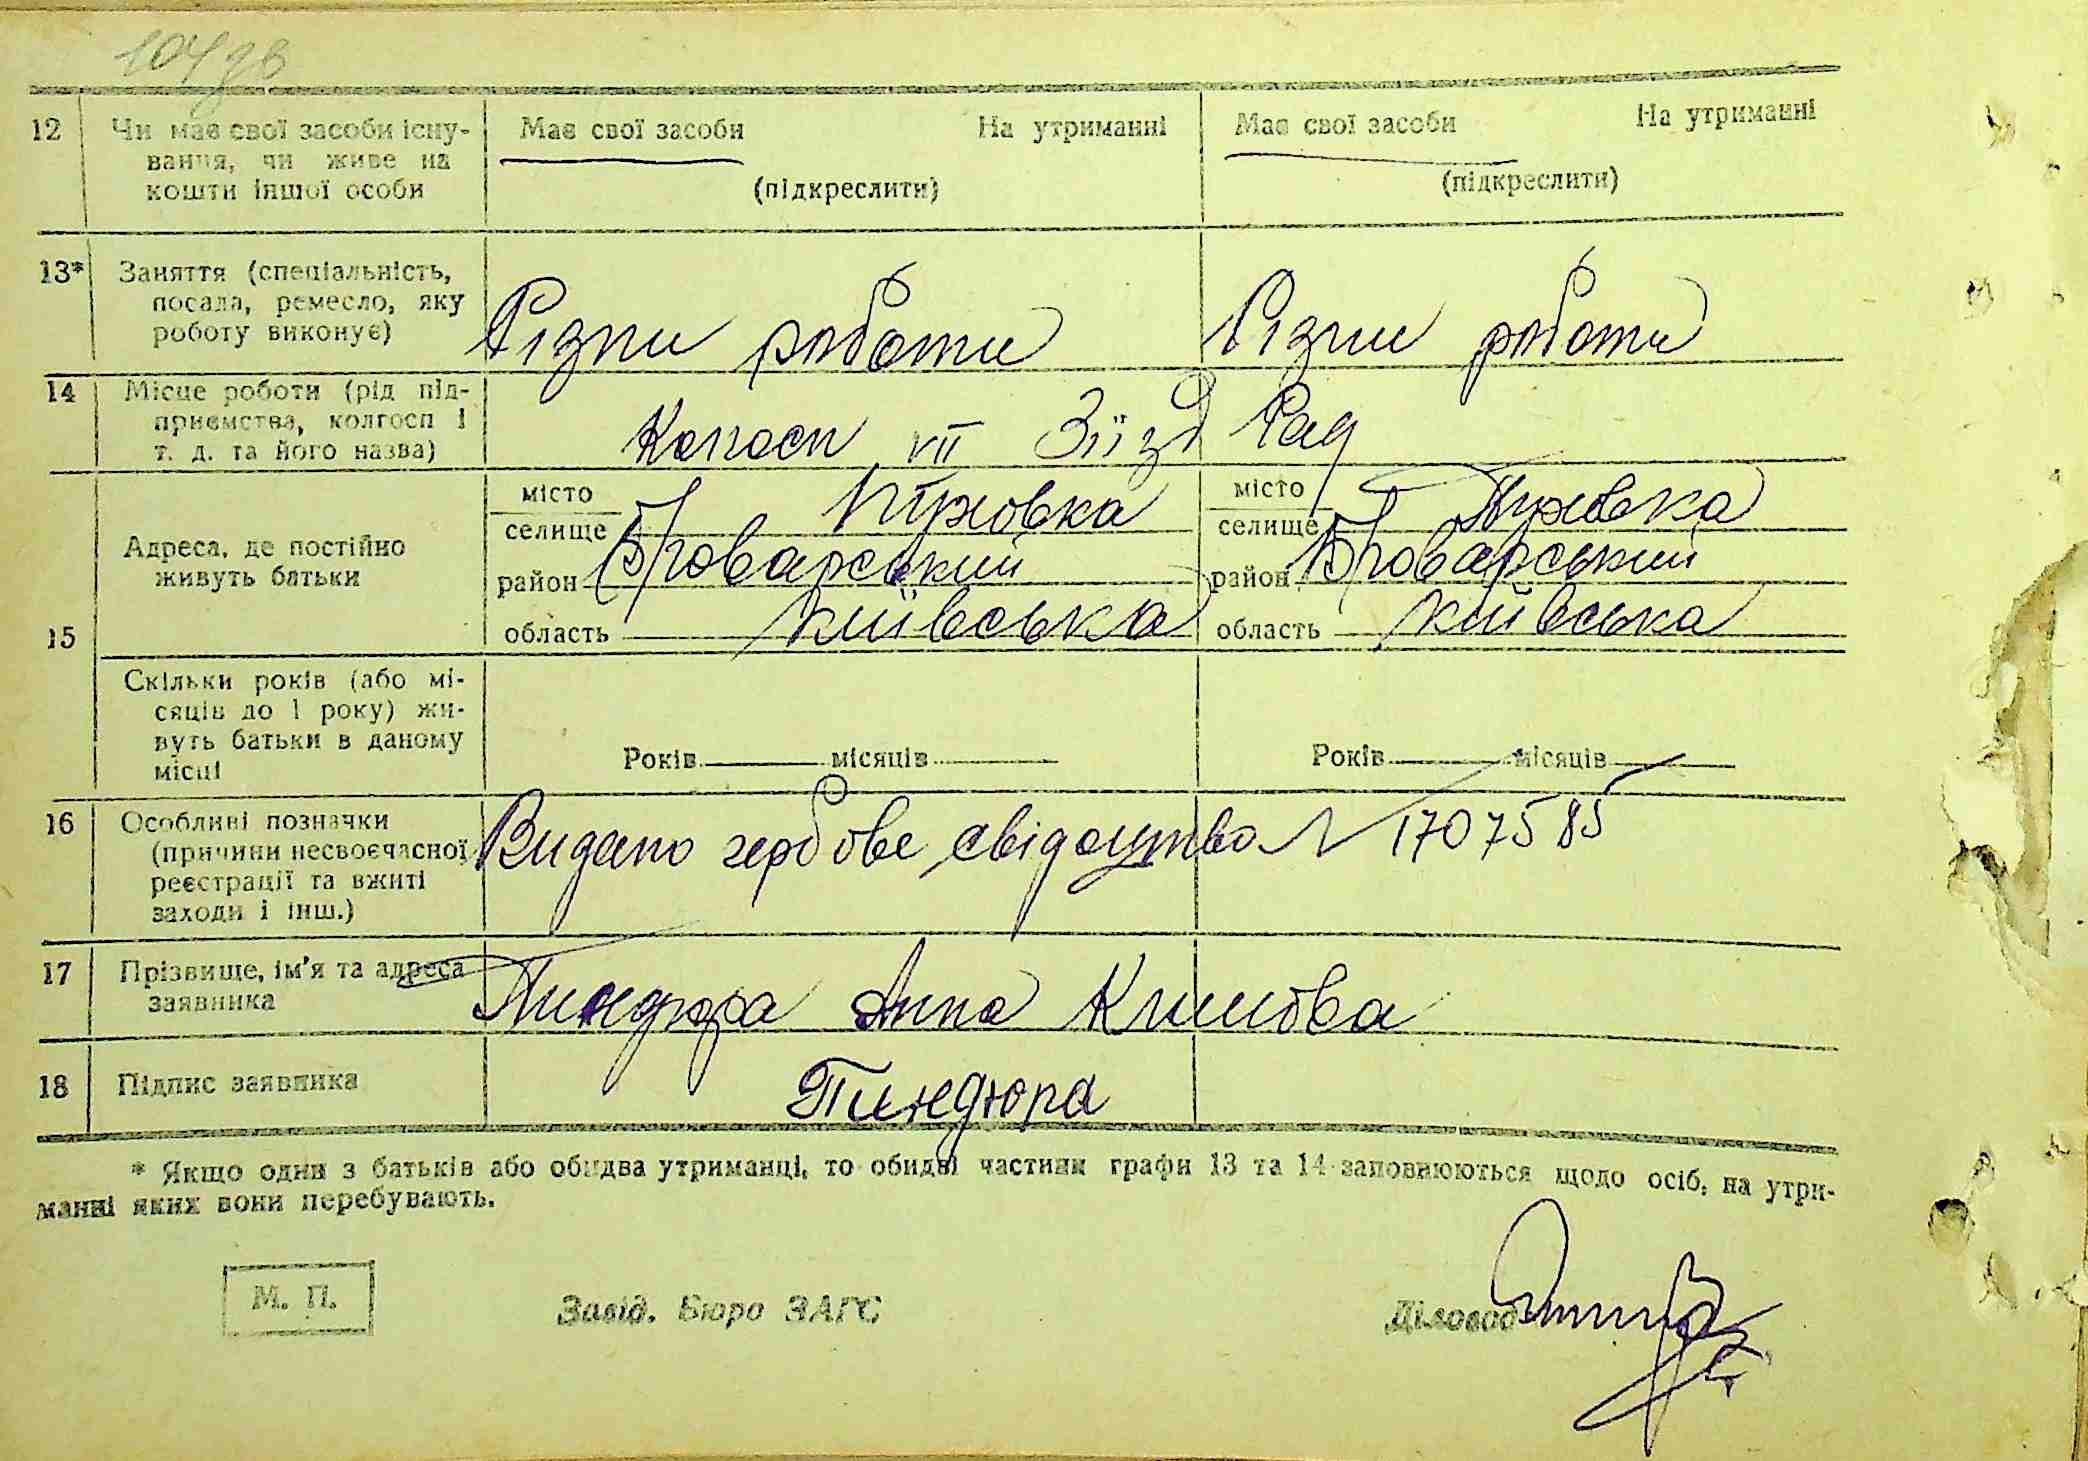 104 зв
12 Чи має свої засоби існу- Має свої засоби На утриманні Має свої засоби На утриманні
вання, чи живе на
кошти іншої особи (підкреслити) (підкреслити)
13* Заняття (спеціальність,
посада, ремесло, яку
роботу виконує) Різни роботи Різни роботи
14 Місце роботи (рід під-
приємства, колгосп і Колгосп VII Зїїзд Рад
т. д. та його назва)
15 Адреса, де постійно
живуть батьки
місто Пуховка місто Пуховка
селище селище
район Броварський район Броварський
область Київська область Київська
Скільки років (або мі-
сяців до 1 року) жи-
вуть батьки в даному
місці Років місяців Років місяців
16 Особливі позначки
(причини несвоєчасної Видано гербове свідоцтво № 1707585
реєстрації та вжиті
заходи і інш.)
17 Прізвище, ім'я та адреса
заявника Пиндюра Анна Климова
18 Підпис заявника Пиндюра
* Якщо один з батьків або обидва утриманці, то обидві частини графи 13 та 14 заповнюються щодо осіб, на утри-
манні яких вони перебувають.
М. П. Завід. Бюро ЗАГС Діловод